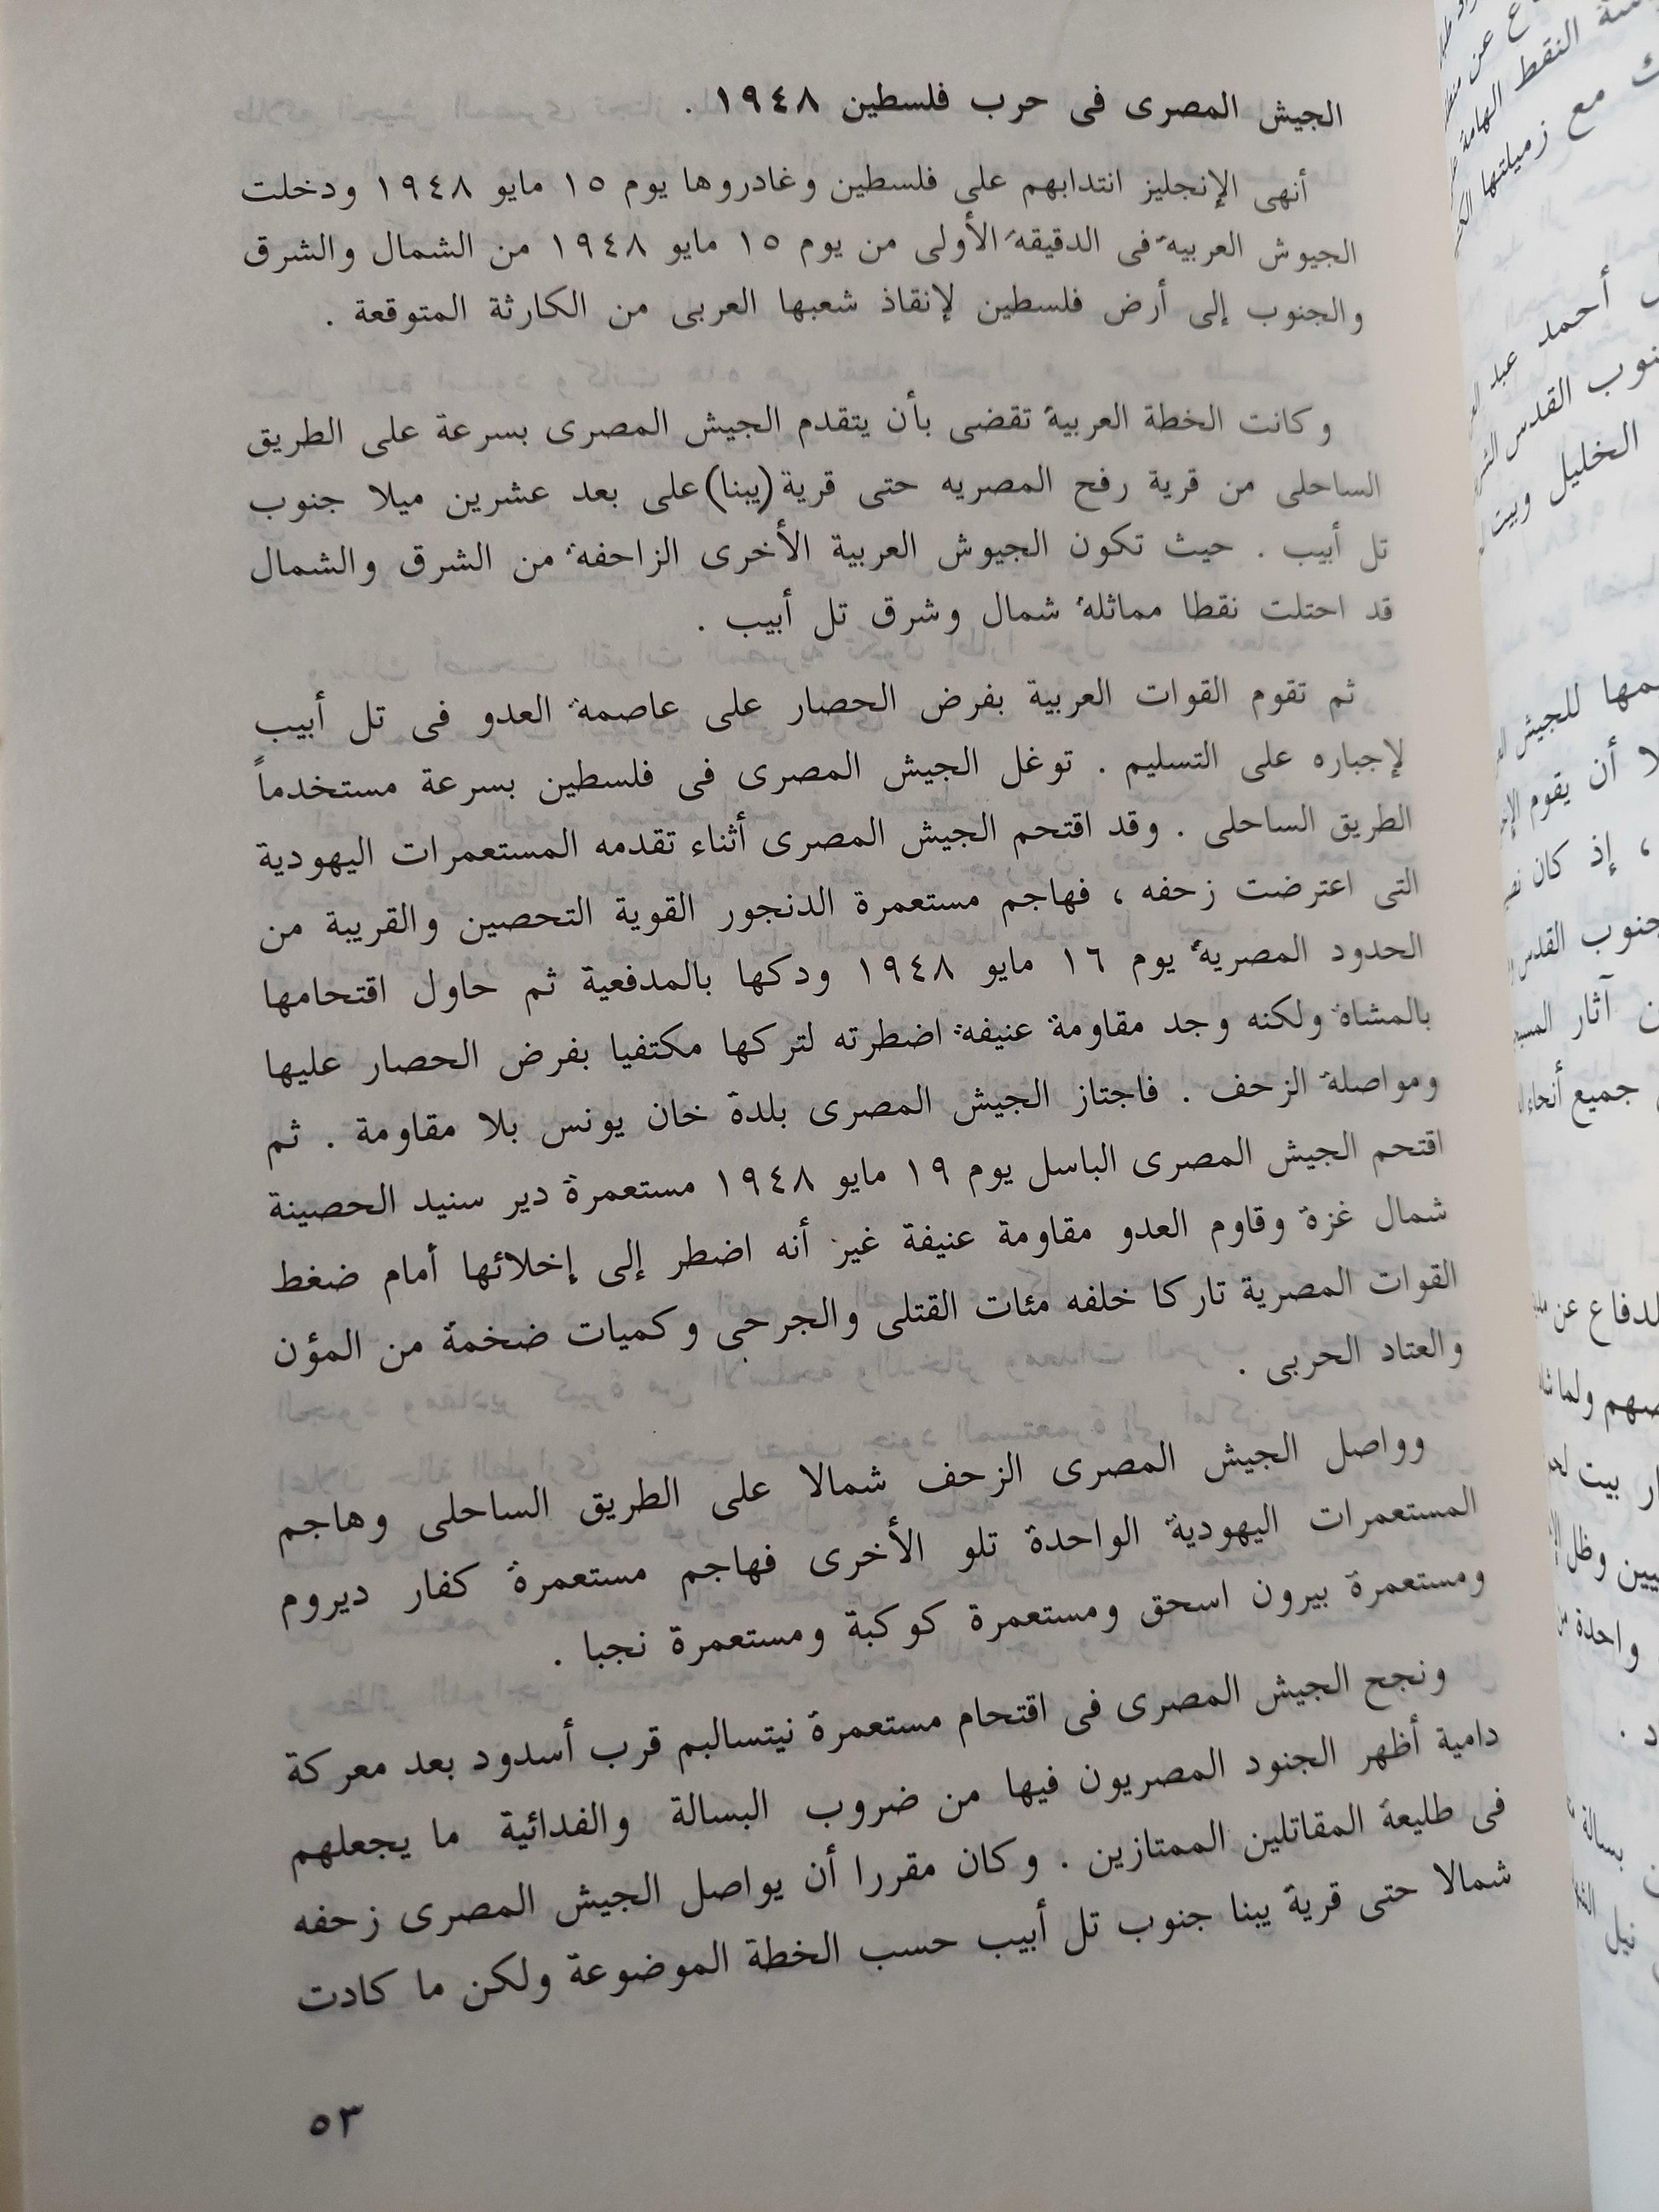 الجيش المصرى فى حرب فلسطين ١٩٤٨ .
أنهى الإنجليز انتدابهم على فلسطين وغادروها يوم ١٥ مايو ١٩٤٨ ودخلت
الجيوش العربية فى الدقيقة الأولى من يوم ١٥ مايو ١٩٤٨ من الشمال والشرق
والجنوب إلى أرض فلسطين لإنقاذ شعبها العربى من الكارثة المتوقعة .
وكانت الخطة العربية تقضى بأن يتقدم الجيش المصرى بسرعة على الطريق
الساحلى من قرية رفح المصريه حتى قرية (يبنا) على بعد عشرين ميلا جنوب
تل أبيب . حيث تكون الجيوش العربية الأخرى الزاحفة من الشرق والشمال
قد احتلت نقطا مماثلة شمال وشرق تل أبيب .
ثم تقوم القوات العربية بفرض الحصار على عاصمة العدو فى تل أبيب
لإجباره على التسليم . توغل الجيش المصرى فى فلسطين بسرعة مستخدماً
الطريق الساحلى . وقد اقتحم الجيش المصرى أثناء تقدمه المستعمرات اليهودية
التى اعترضت زحفه ، فهاجم مستعمرة الدنجور القوية التحصين والقريبة من
الحدود المصرية يوم ١٦ مايو ١٩٤٨ ودكها بالمدفعية ثم حاول اقتحامها
بالمشاة ولكنه وجد مقاومة عنيفة اضطرته لتركها مكتفيا بفرض الحصار عليها
ومواصلة الزحف . فاجتاز الجيش المصرى بلدة خان يونس بلا مقاومة . ثم
اقتحم الجيش المصرى الباسل يوم ١٩ مايو ١٩٤٨ مستعمرة دير سنيد الحصينة
شمال غزة وقاوم العدو مقاومة عنيفة غير أنه اضطر إلى إخلائها أمام ضغط
القوات المصرية تاركا خلفه مئات القتلى والجرحى وكميات ضخمة من المؤن
والعتاد الحربى .
وواصل الجيش المصرى الزحف شمالا على الطريق الساحلى وهاجم
المستعمرات اليهودية الواحدة تلو الأخرى فهاجم مستعمرة كفار ديروم
ومستعمرة بيرون اسحق ومستعمرة كوكبة ومستعمرة نجبا .
ونجح الجيش المصرى فى اقتحام مستعمرة نيتسالبم قرب أسدود بعد معركة
دامية أظهر الجنود المصريون فيها من ضروب البسالة والفدائية ما يجعلهم
فى طليعة المقاتلين الممتازين . وكان مقررا أن يواصل الجيش المصرى زحفه
شمالا حتى قرية يبنا جنوب تل أبيب حسب الخطة الموضوعة ولكن ما كادت
٥٣
النقط الهامة
مع زميلتها
أحمد عبد
القدس
الخليل وبيت
للجيش
أن يقوم
، إذ كان
جنوب القدس
آثار
جميع أنحاء
عن
ولما
بيت
وظل
واحدة
بسالة
نيل